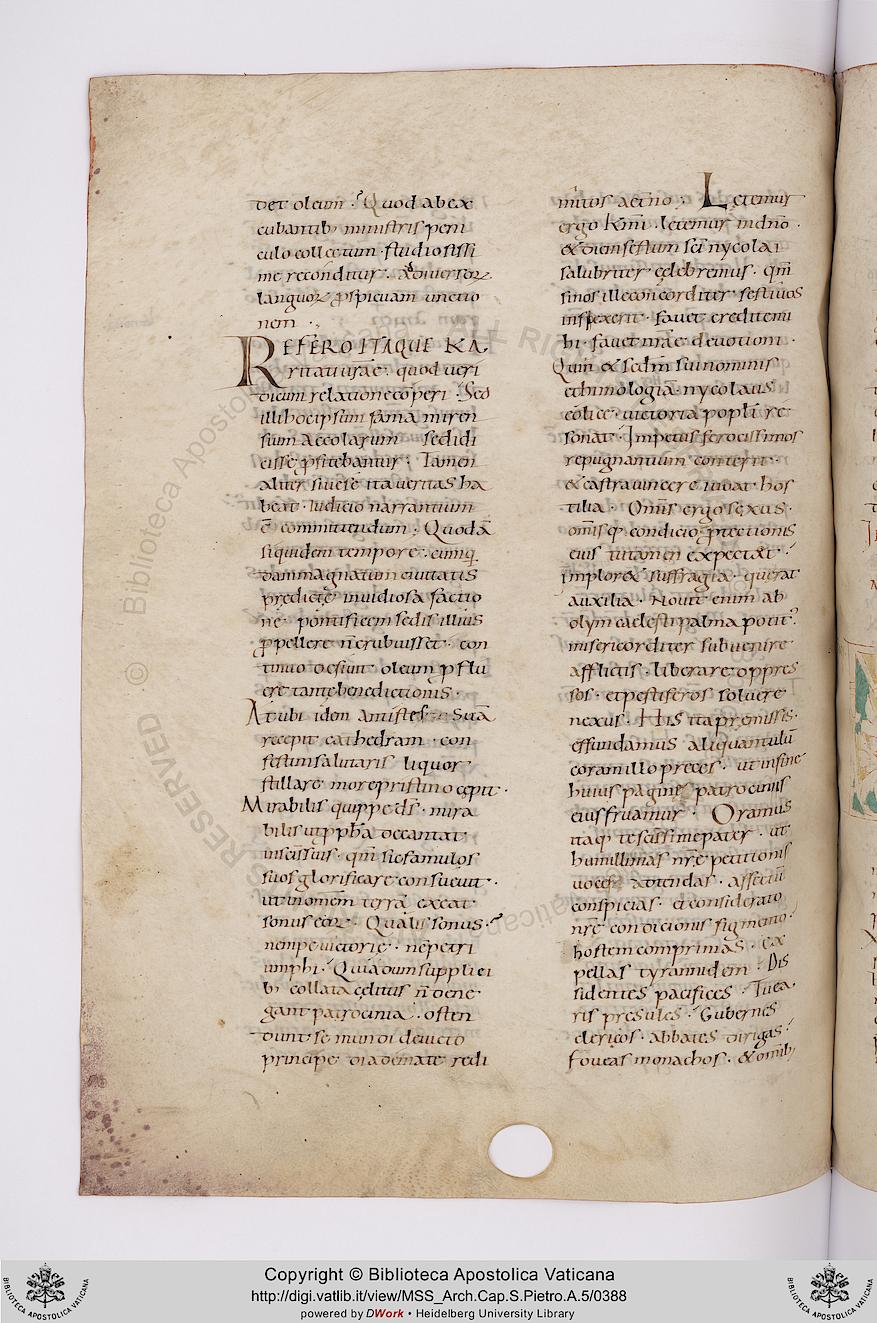 det oleum · Quod ab ex
cubantib; ministris peni
culo collectum · studiosissi
me reconditur · ad diversoꝝ
languoꝝ ꝑspicuam unctio
nem ·
REFERO ITAQUE KA
ritati ur̄ae · quod veri
dicum relatione coperi · Sed
illi hoc ipsum fama miren
sium accolarum sedidi
cisse ꝓfitebantur · Tamen
aliter sive se ita veritas ha
beat · iudicio narrantium
ē committendum · Quodā
siquidem tempore · cumq;
dam magnatum civitatis
predictę invidiosa factio
ne · pontificem sedis illius
ꝓpellere n̄ erubuisset · con
tinuo desiīt oleum ꝓflu
ere tantę benedictionis ·
At ubi idem antistes suā
recepit cathedram · con
festim salutaris liquor
stillare more pristino cępit ·
Mirabilis quippe d̄s · mira
bilis ut ꝓph̄a decantat
in sc̄is suis · qm̄ sic famulos
suos glorificare consuevit ·
ut in omēm terrā exeat
sonus eoꝝ · Qualis sonus
nempe victorię · nępe tri
umphi · Quia dum supplici
b; collata cęlitus n̄ dene
gant patrocinia · osten
dunt se mundi devicto
principe diademate redi
mitos aet̄no · Letemur
ergo k̄mi · letemur in dn̄o ·
& diem festum sc̄i nycolai
salubriter celebremus · qm̄
si nos ille concorditer festivos
inspexerit · favet crediteni
hi · favet nr̄ae devotioni ·
Quin & sc̄dm sui nominis
ethimologiā · nycolaus
eolice victoria popli re
sonat · Impetus ferocissimos
repugnantium conterit ·
& castra vincere iubat hos
tilia · Omīs ergo sexus ·
omīsq; condicio ꝓtectionis
eius iuvamen expectat ·
implor& suffragia · querat
auxilia · Novit enim ab
olym caelesti palma potit;
misericorditer subvenire
afflictis · liberare oppres
sos · et pestiferos solvere
nexus · His ita premissis
effundamus aliquantulū
coram illo preces · ut in fine
huius paginę patrociniis
eius fruamur · Oramus
itaq; te sc̄issime pater · ut
humillimas nr̄ę petitionis
voces attendas · affectū
conspicias · et considerato
nr̄ę condicionis figmento
hostem comprimas · ex
pellas tyrannidem · Dis
sidentes pacifices · Tuea
ris presules · Gubernes
clericos · abbates dirigas
foveas monachos · & omīb;
Copyright © Biblioteca Apostolica Vaticana
http://digi.vatlib.it/view/MSS_Arch.Cap.S.Pietro.A.5/0388
powered by DWork • Heidelberg University Library